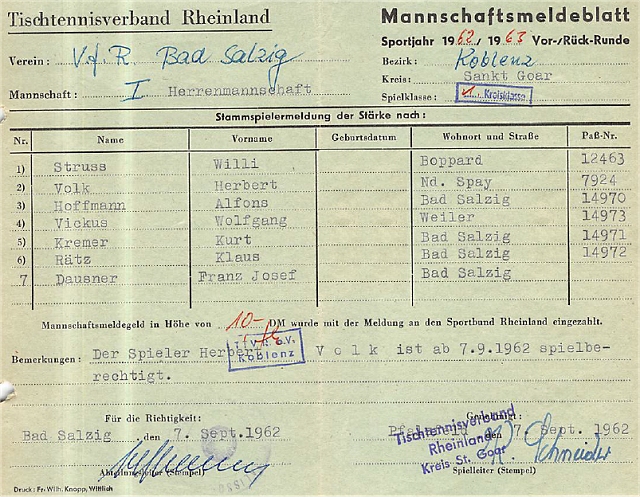 Tischtennisverband Rheinland
Mannschaftsmeldeblatt
Sportjahr 1962 / 1963 Vor-/Rück-Runde
Verein : V.f.R. Bad Salzig
Bezirk: Koblenz
Kreis: Sankt Goar
Mannschaft : I Herrenmannschaft
Spielklasse: 1. Kreisklasse
Stammspielermeldung der Stärke nach:
Nr. Name Vorname Geburtsdatum Wohnort und Straße Paß-Nr.
1) Struss Willi Boppard 12463
2) Volk Herbert Nd. Spay 7924
3) Hoffmann Alfons Bad Salzig 14970
4) Vickus Wolfgang Weiler 14973
5) Kremer Kurt Bad Salzig 14971
6) Rätz Klaus Bad Salzig 14972
7 Dausner Franz Josef Bad Salzig
Mannschaftsmeldegeld in Höhe von 10,- DM wurde mit der Meldung an den Sportbund Rheinland eingezahlt.
T.T.V.R. e.V.
Koblenz
Bemerkungen : Der Spieler Herbert Volk ist ab 7.9.1962 spielbe-
rechtigt.
Für die Richtigkeit:
Bad Salzig , den 7. Sept.1962
Abteilungsleiter (Stempel)
7. Sept. 1962
Tischtennisverband
Rheinland
Kreis St. Goar
Schneider
Spielleiter (Stempel)
Druck: Fr. Wilh. Knopp, Wittlich